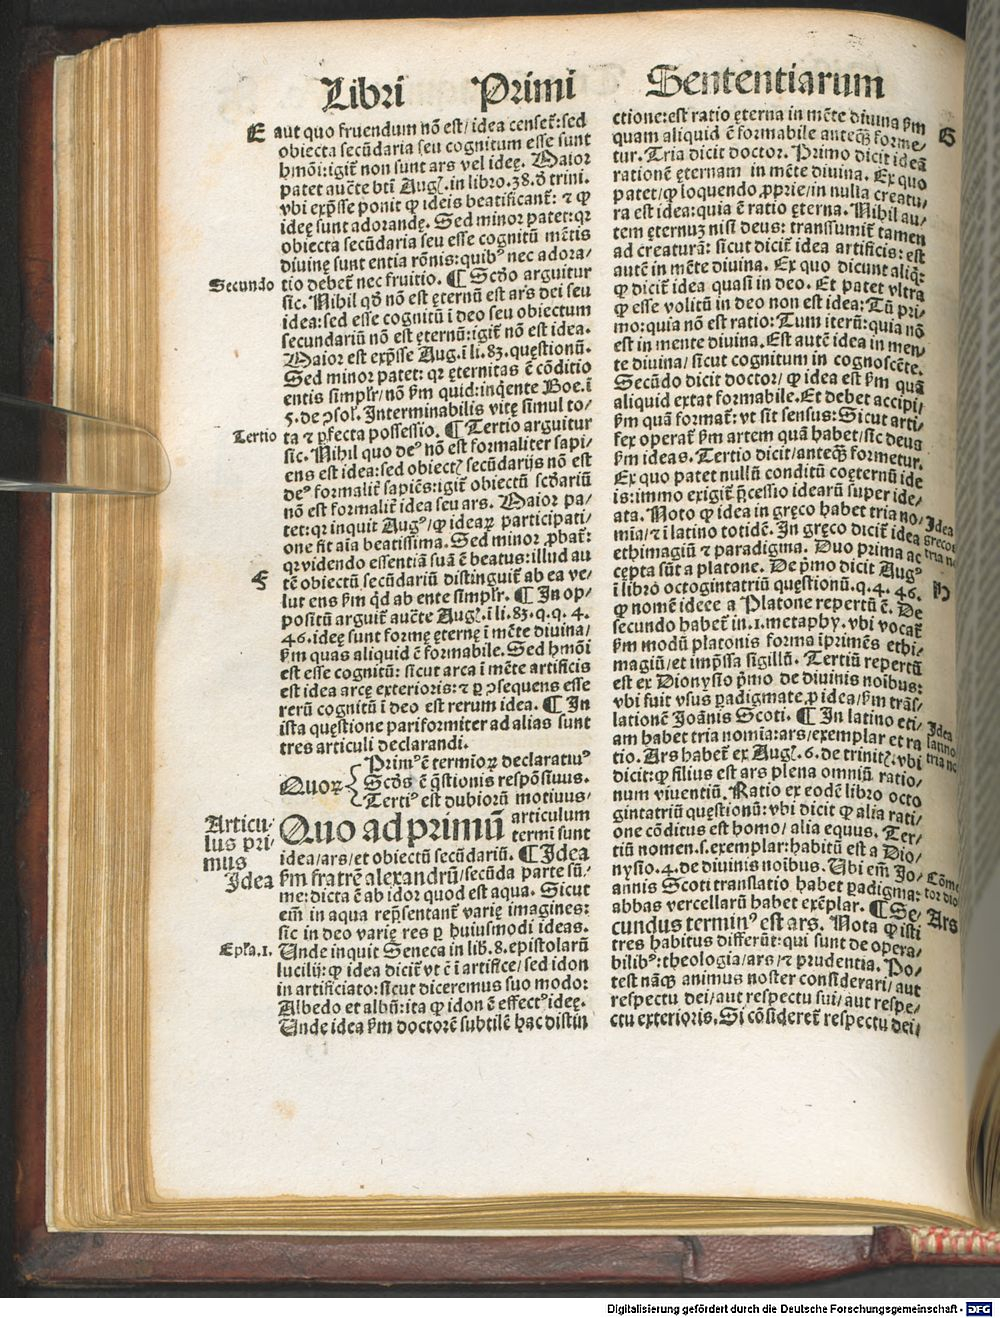 Libri Primi Sententiarum
E
aut quo fruendum nõ est/ idea censet̃: sed
obiecta secũdaria seu cognitum esse sunt
hmõi: igit̃ non sunt ars vel ideę. Maior
patet auc̃te bt̃i Augꝭ. in libro. 38. đ trini.
vbi exp̃sse ponit ꝙ ideis beatificant̃: ⁊ ꝙ
ideę sunt adorandę. Sed minor patet: qꝛ
obiecta secũdaria seu esse cognitũ mẽtis
diuinę sunt entia rõnis: quibꝰ nec adora/
Secundo
tio debet̃ nec fruitio. ¶ Scđo arguitur
sic. Nihil qđ nõ est ęternũ est ars dei seu
idea: sed esse cognitũ ĩ deo seu obiectum
secundariũ nõ est ęternũ: igit̃ nõ est idea.
Maior est exp̃sse Aug. ĩ li. 83. quęstionũ.
Sed minor patet: qꝛ ęternitas ẽ cõditio
entis simplr̃/ nõ ẜm quid: inq̃ente Boe. ĩ
5. de ↄsol. Interminabilis vitę simul to/
Tertio
ta ⁊ ꝑfecta possessio. ¶ Tertio arguitur
sic. Nihil quo deꝰ nõ est formaliter sapi/
ens est idea: sed obiectꝭ secũdarijs nõ est
deꝰ formalit̃ sapiẽs: igit̃ obiectũ scđariũ
nõ est formalit̃ idea seu ars. Maior pa/
tet: qꝛ inquit Augꝰ/ ꝙ ideaꝝ participati/
one fit aĩa beatissima. Sed minor ꝓbat̃:
qꝛ videndo essentiã suã ẽ beatus: illud au
F
tẽ obiectũ secũdariũ distinguit̃ ab ea ve/
lut ens ẜm q̃d ab ente simplr̃. ¶ In op/
positũ arguit̃ auc̃te Augꝭ. ĩ li. 83. q. q. 4.
46. ideę sunt formę ęternę ĩ mẽte diuina/
ẜm quas aliquid ẽ formabile. Sed hmõi
est esse cognitũ: sicut arca ĩ mẽte artificis
est idea arcę exterioris: ⁊ ꝑ ↄsequens esse
rerũ cognitũ ĩ deo est rerum idea. ¶ In
ista quęstione pariformiter ad alias sunt
tres articuli declarandi.
Quoꝝ
Primꝰ ẽ termioꝝ declaratiuꝰ
Scđs ẽ q̃stionis respõsiuus.
Tertiꝰ est dubiorũ motiuus/
Articu/
lus pri/
mus
Quo ad primũ articulum
termĩ sunt
idea/ ars/ et obiectũ secũdariũ. ¶ Idea
Idea
ẜm fratrẽ alexandrũ/ secũda parte sũ/
me: dicta ẽ ab idor quod est aqua. Sicut
em̃ in aqua rep̃sentant̃ varię imagines:
sic in deo varię res ꝑ huiusmodi ideas.
Epl̃a. 1.
Unde inquit Seneca in lib. 8. epistolarũ
lucilij: ꝙ idea dicit̃ vt ẽ ĩ artifice/ sed idon
in artificiato: sicut diceremus suo modo:
Albedo et albũ: ita ꝙ idon ẽ effectꝰ ideę.
Unde idea ẜm doctorẽ subtilẽ hac distin
ctione: est ratio ęterna in mẽte diuina ẜm
G
quam aliquid ẽ formabile anteꝙ̃ forme/
tur. Tria dicit doctor. Primo dicit ideã
rationẽ ęternam in mẽte diuina. Ex quo
patet/ ꝙ loquendo ꝓprie/ in nulla creatu/
ra est idea: quia ẽ ratio ęterna. Nihil au/
tem ęternuʒ nisi deus: transsumit̃ tamen
ad creaturã: sicut dicit̃ idea artificis: est
autẽ in mẽte diuina. Ex quo dicunt aliq̃:
ꝙ dicit̃ idea quasi in deo. Et patet vltra
ꝙ esse volitũ in deo non est idea: Tũ pri/
mo: quia nõ est ratio: Tum iterũ: quia nõ
est in mente diuina. Est autẽ idea in men/
te diuina/ sicut cognitum in cognoscẽte.
Secũdo dicit doctor/ ꝙ idea est ẜm quã
aliquid extat formabile. Et debet accipi/
ẜm quã format̃: vt sit sensus: Sicut arti/
fex operat̃ ẜm artem quã habet/ sic deus
ẜm ideas. Tertio dicit/ anteꝙ̃ formetur.
Ex quo patet nullũ conditũ coęternũ ide
is: immo exigit̃ p̃cessio idearũ super ide/
ata. Noto ꝙ idea in gręco habet tria no/
Idea
mĩa/ ⁊ ĩ latino totidẽ. In gręco dicit̃ idea
grecos
ethimagiũ ⁊ paradigma. Duo prima ac
tria
cępta sũt a platone. De p̃mo dicit Augꝰ
ĩ libro octogintatriũ quęstionũ. q. 4. 46.
H
ꝙ nomẽ ideee a Platone repertũ ẽ. De
secundo habet̃ in. 1. metaphy. vbi vocat̃
ẜm modũ platonis forma ĩprimẽs ethi/
magiũ/ et imp̃ssa sigillũ. Tertiũ repertũ
est ex Dionysio p̃mo de diuinis noĩbus:
vbi fuit vsus ꝑadigmate ꝓ idea/ ẜm trãs/
lationẽ Joãnis Scoti. ¶ In latino eti/
Idea
am habet tria nomĩa: ars/ exemplar et ra
latino
tio. Ars habet̃ ex Augꝭ. 6. de trinit̃. vbi
tria
dicit: ꝙ filius est ars plena omniũ ratio/
num viuentiũ. Ratio ex eodẽ libro octo
gintatriũ quęstionũ: vbi dicit ꝙ alia rati/
one cõditus est homo/ alia equus. Ter/
tiũ nomen. s. exemplar: habitũ est a Dio/
nysio. 4. de diuinis noĩbus. Ubi em̃ Jo/
annis Scoti translatio habet ꝑadigma:
Cõme
tor dio
abbas vercellarũ habet exẽplar. ¶ Se/
Ars
cundus terminꝰ est ars. Nota ꝙ isti
tres habitus differũt: qui sunt de opera/
bilibꝰ: theologia/ ars/ ⁊ prudentia. Po/
test nãꝙ animus noster considerari/ aut
respectu dei/ aut respectu sui/ aut respe/
ctu exterioris. Si cõsideret̃ respectu dei/
Digitalisierung gefördert durch die Deutsche Forschungsgemeinschaft - DFG